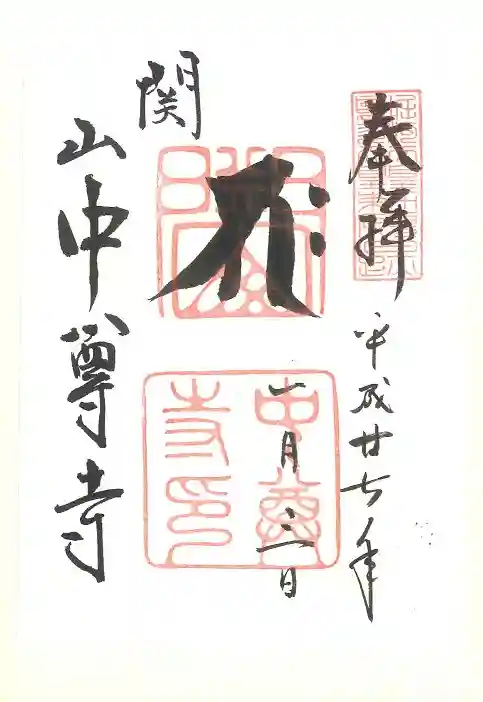 奉拝
平成廿七年
一月三日
関山中尊寺
中尊寺印